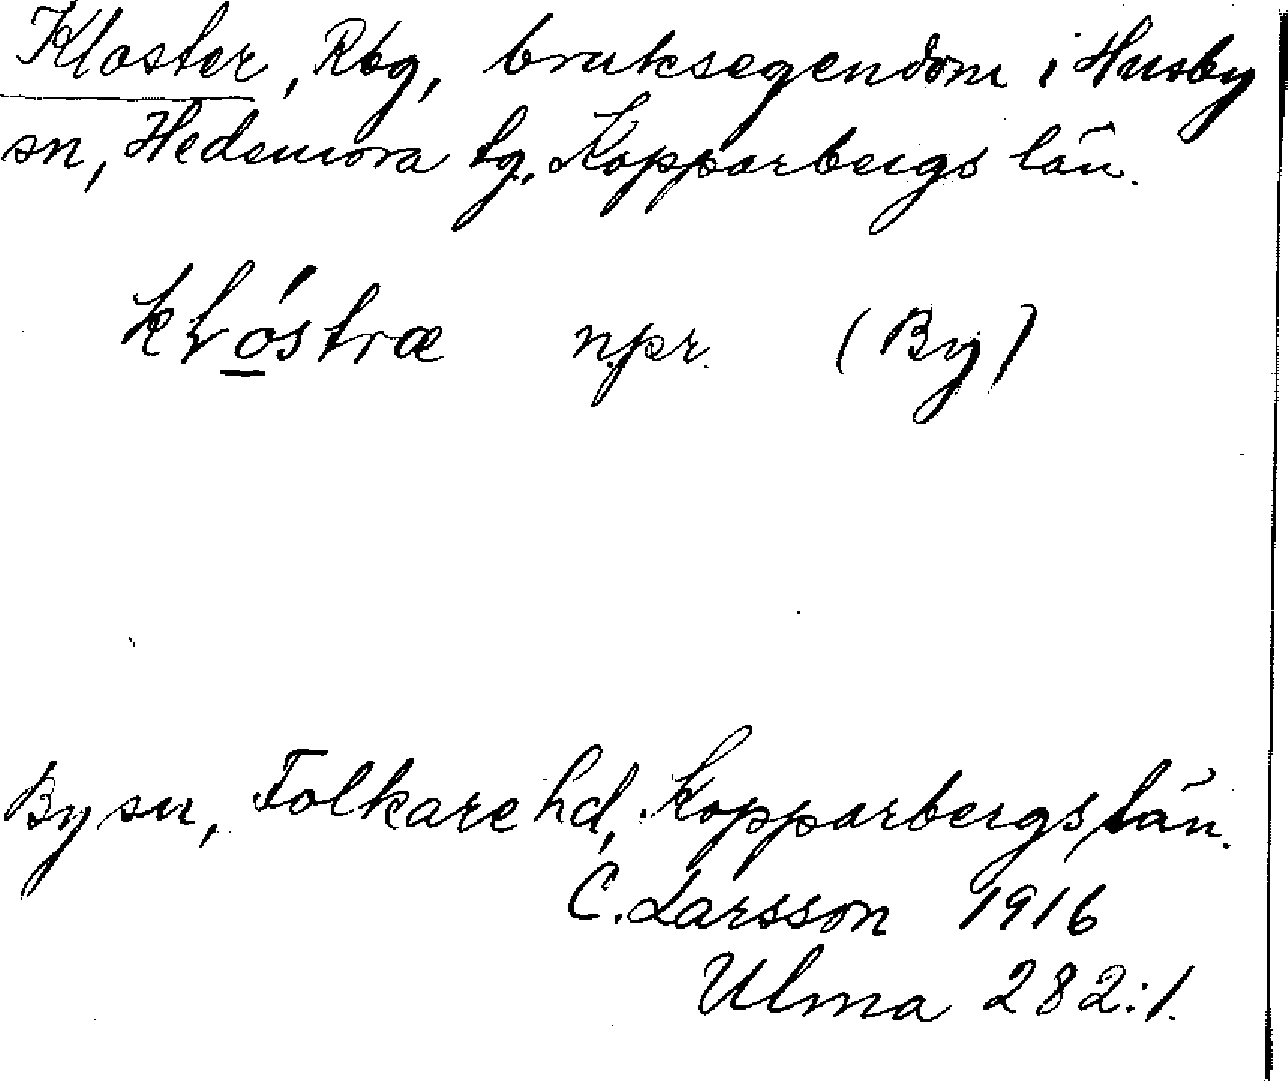 Kloster, Rbg, bruksegendom i Husby
sn, Hedemora tg, Kopparbergs län.
npr. (By)
By sn, Folkare hd, Kopparbergs län.
C. Larsson 1916
Ulma 282:1.